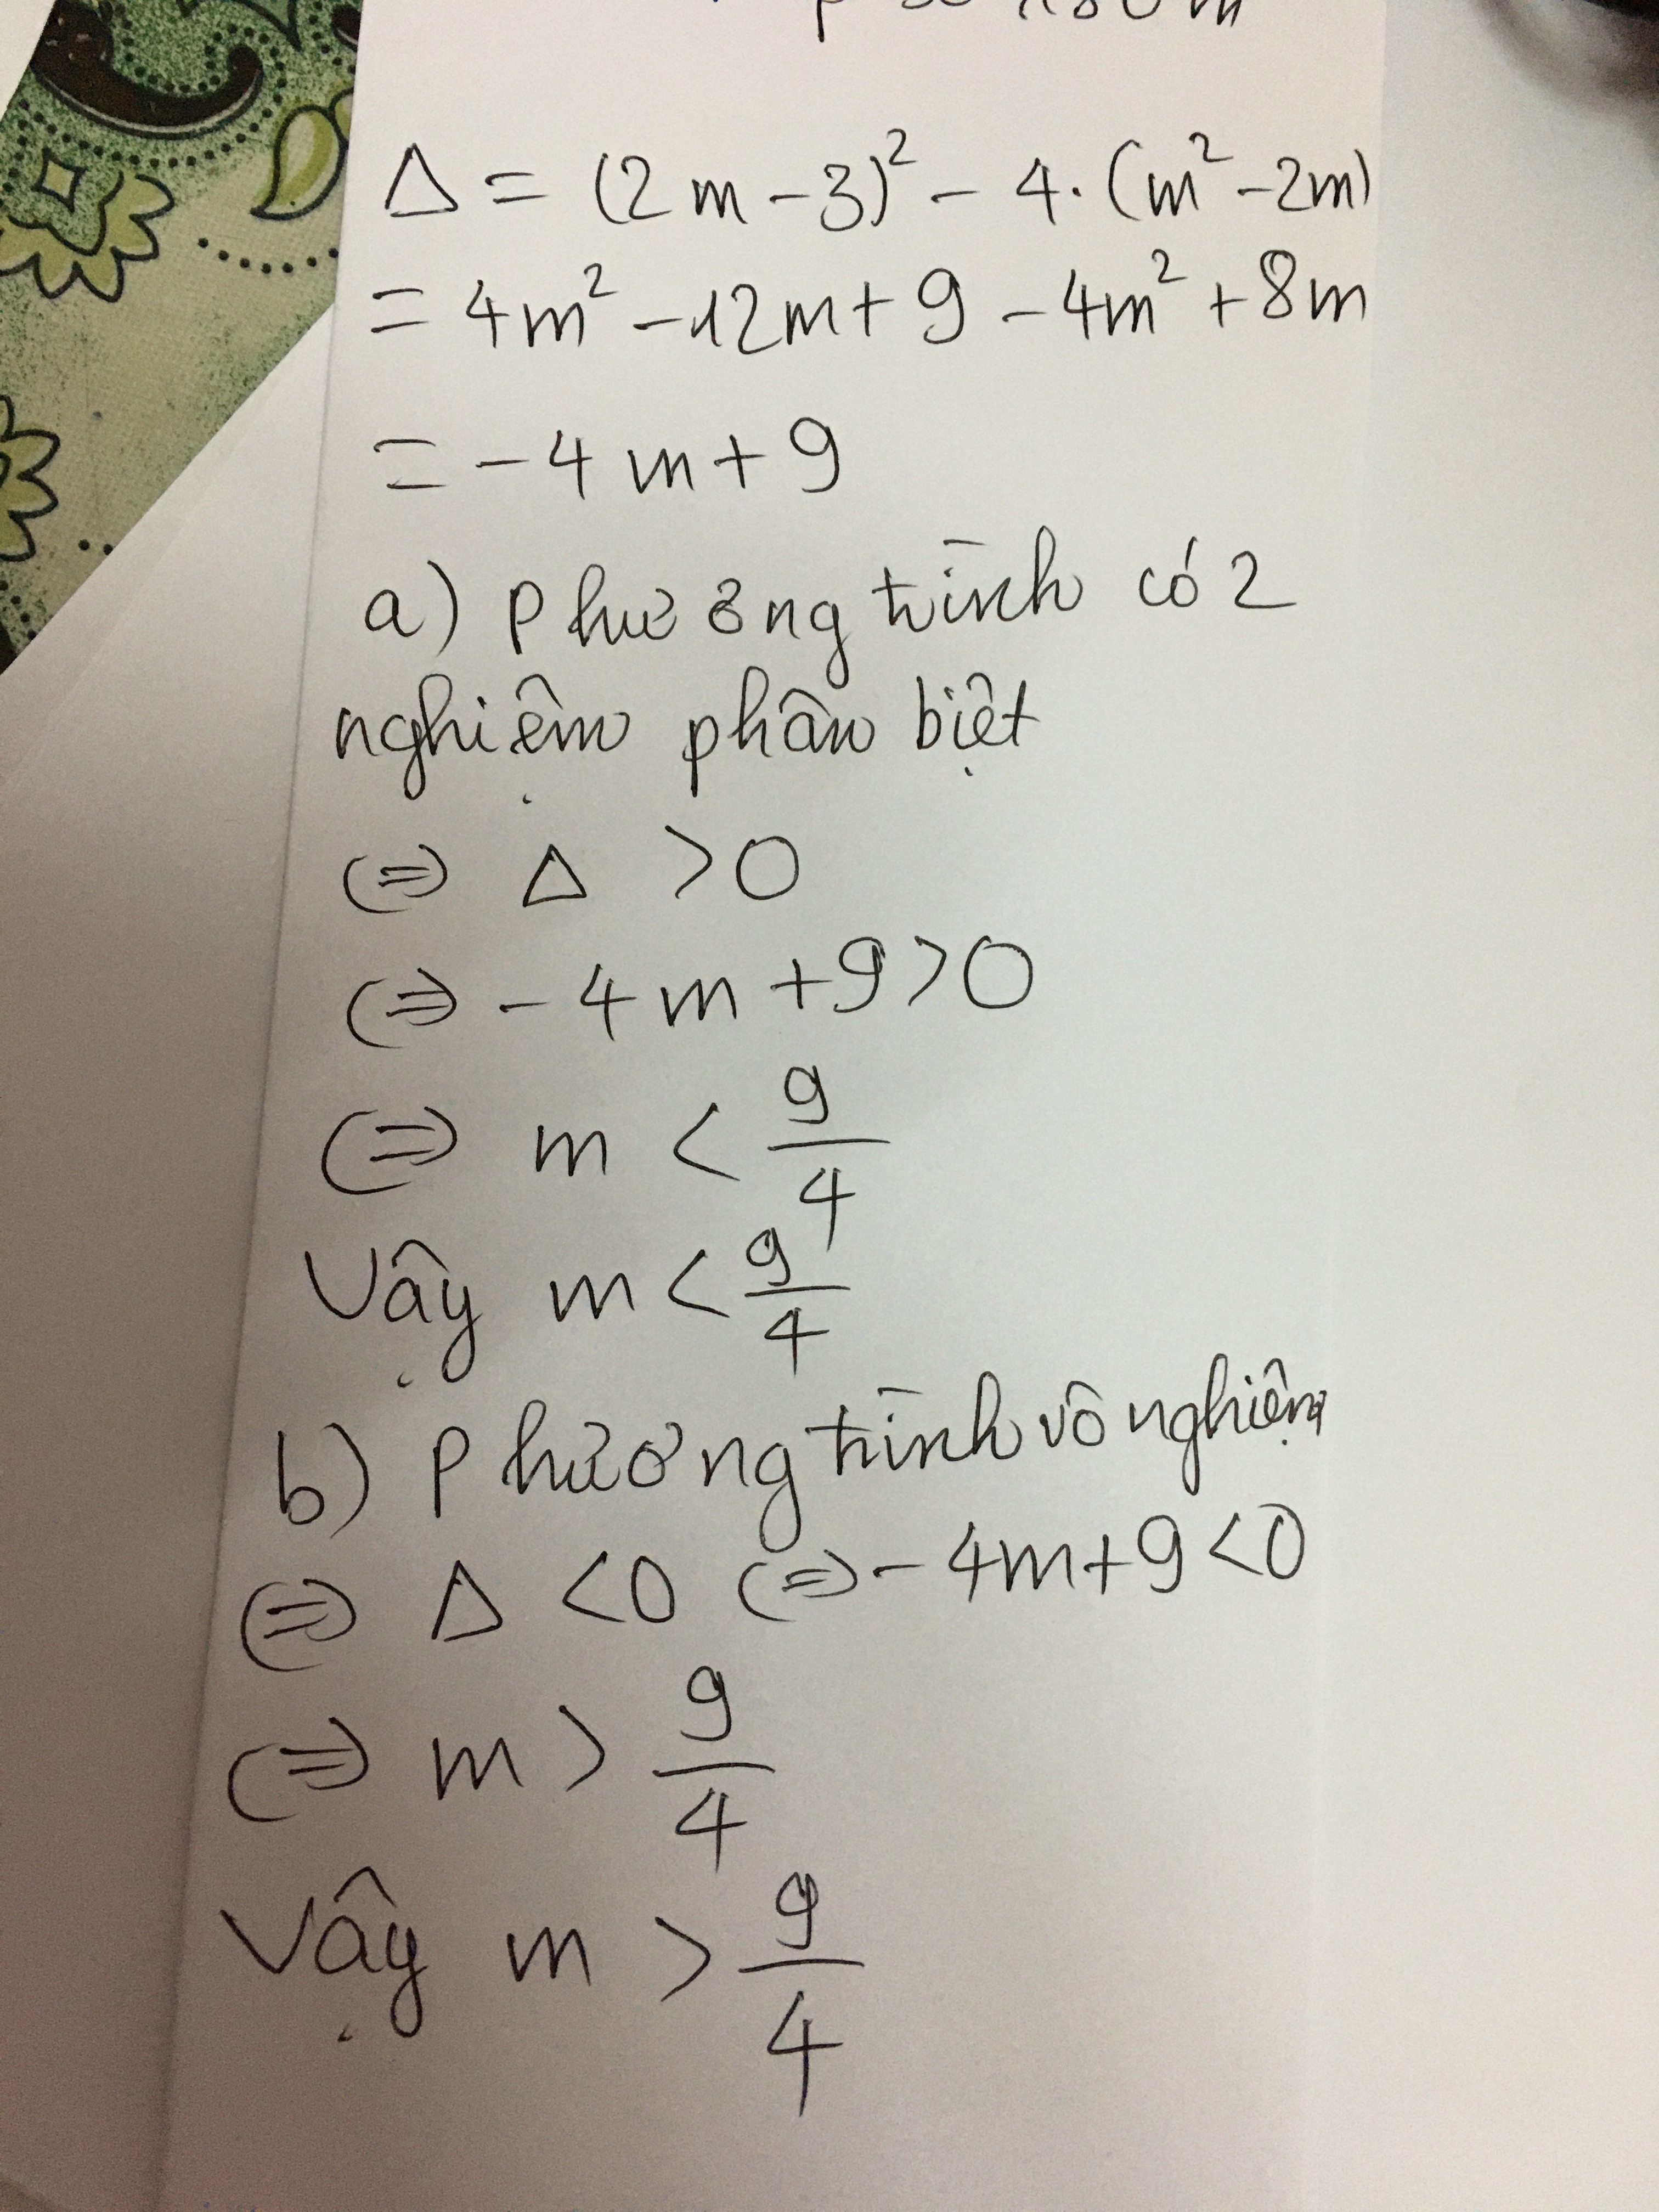 Δ = (2m-3)² - 4.(m²-2m)
= 4m² - 12m + 9 - 4m² + 8m
= -4m + 9
a) Phương trình có 2
nghiệm phân biệt
(=) Δ > 0
(=) -4m + 9 > 0
(=) m < 9/4
Vậy m < 9/4
b) Phương trình vô nghiệm
(=) Δ < 0 (=) -4m + 9 < 0
(=) m > 9/4
Vậy m > 9/4